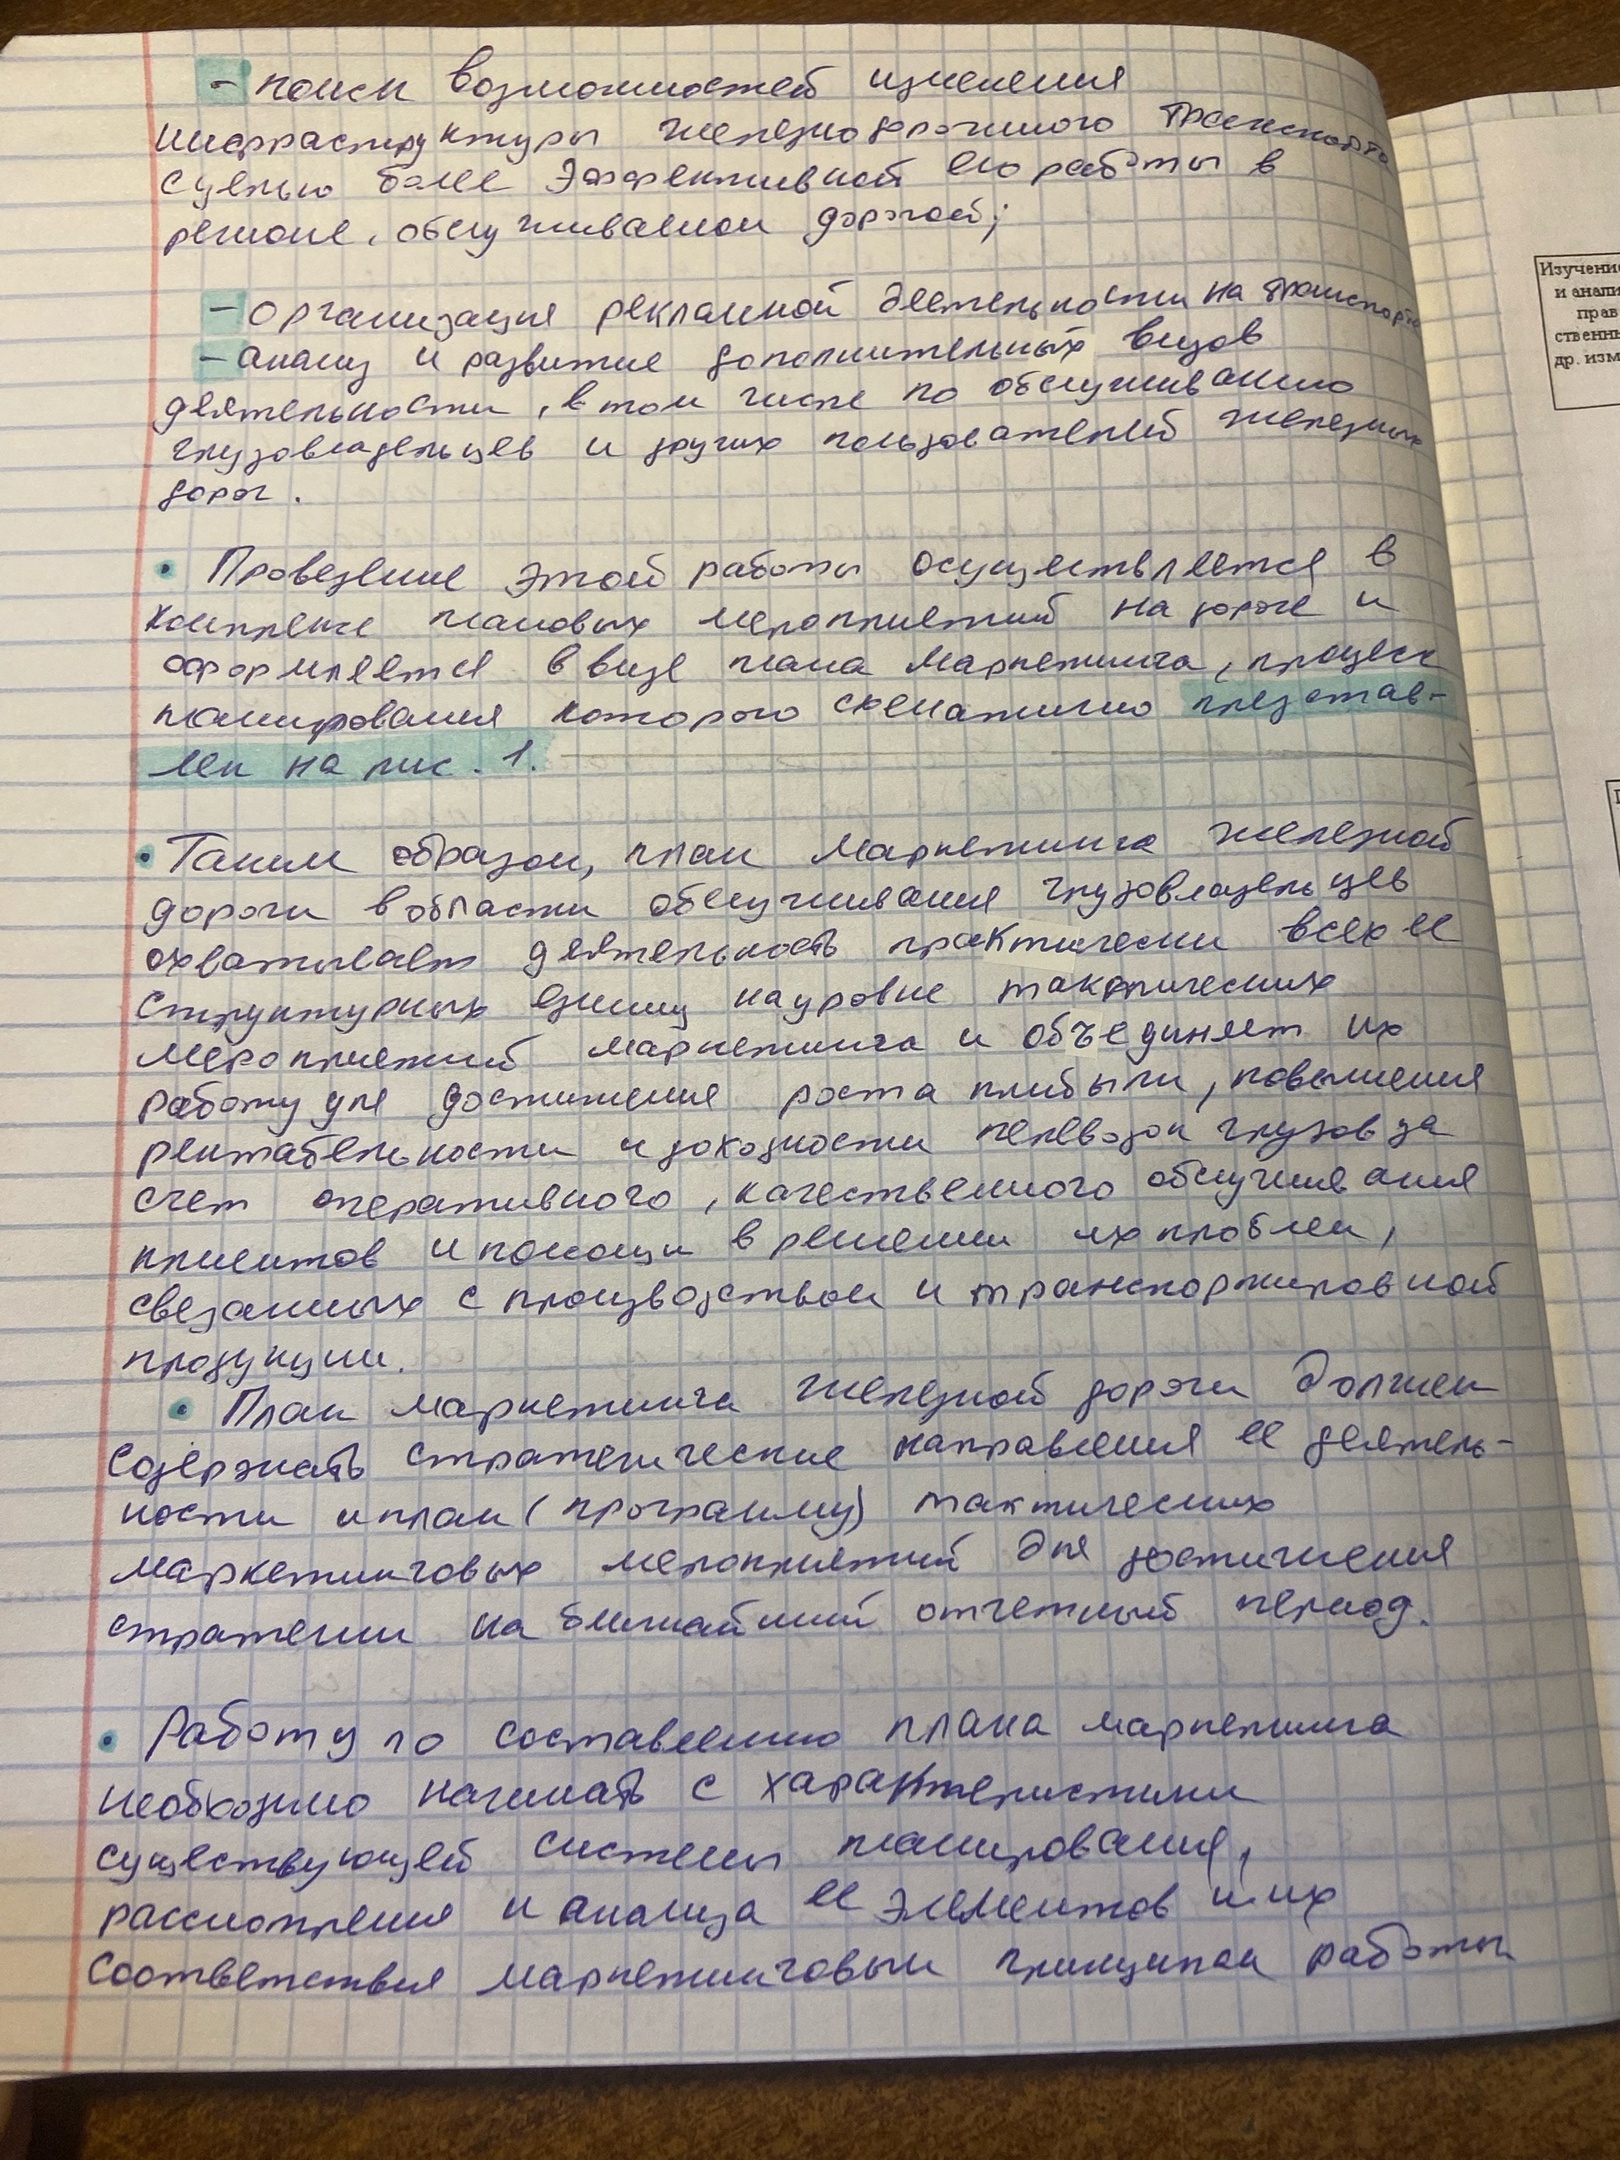 - поиск возможностей изменения
инфраструктуры железнодорожного транспорта
с целью более эффективной его работы в
регионе, обслуживаемом дорогой;
- организация рекламной деятельности на транспорте
- анализ и развитие дополнительных видов
деятельности, в том числе по обслуживанию
грузовладельцев и других пользователей железных
дорог.
• Проведение этой работы осуществляется в
комплексе плановых мероприятий на дороге и
оформляется в виде плана маркетинга, процесс
планирования которого схематично представ-
лен на рис. 1.
• Таким образом, план маркетинга железной
дороги в области обслуживания грузовладельцев
охватывает деятельность практически всех ее
структурных единиц на уровне тактических
мероприятий маркетинга и объединяет их
работу для достижения роста прибыли, повышения
рентабельности и доходности перевозок грузов за
счет оперативного, качественного обслуживания
клиентов и помощи в решении их проблем,
связанных с производством и транспортировкой
продукции.
• План маркетинга железной дороги должен
содержать стратегические направления ее деятель-
ности и план (программу) тактических
маркетинговых мероприятий для достижения
стратегии на ближайший отчетный период.
• Работу по составлению плана маркетинга
необходимо начинать с характеристики
существующей системы планирования,
рассмотрения и анализа ее элементов и их
соответствия маркетинговым принципам работы
Изучение
и анали
прав
ственны
др. изм